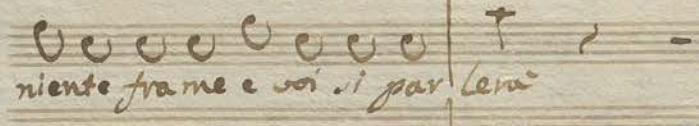 niente fra me e voi si par lerà